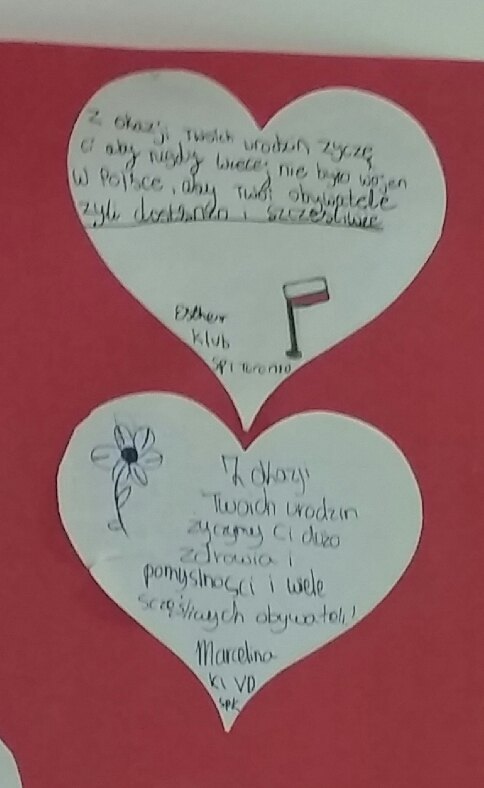 Z okazji Twoich urodzin życzę
ci aby nigdy więcej nie było wojen
w Polsce, aby Twoi obywatele
żyli dostatnio i szczęśliwie
Esther
Klub
Z okazji
Twoich urodzin
życzymy Ci dużo
zdrowia i
pomyślności i wiele
sczęśliwych obywateli!
Marcelina
Kl VD
SPK